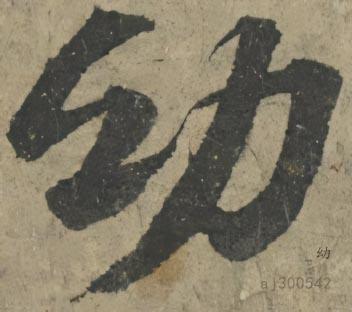 幼
幼
aj300542